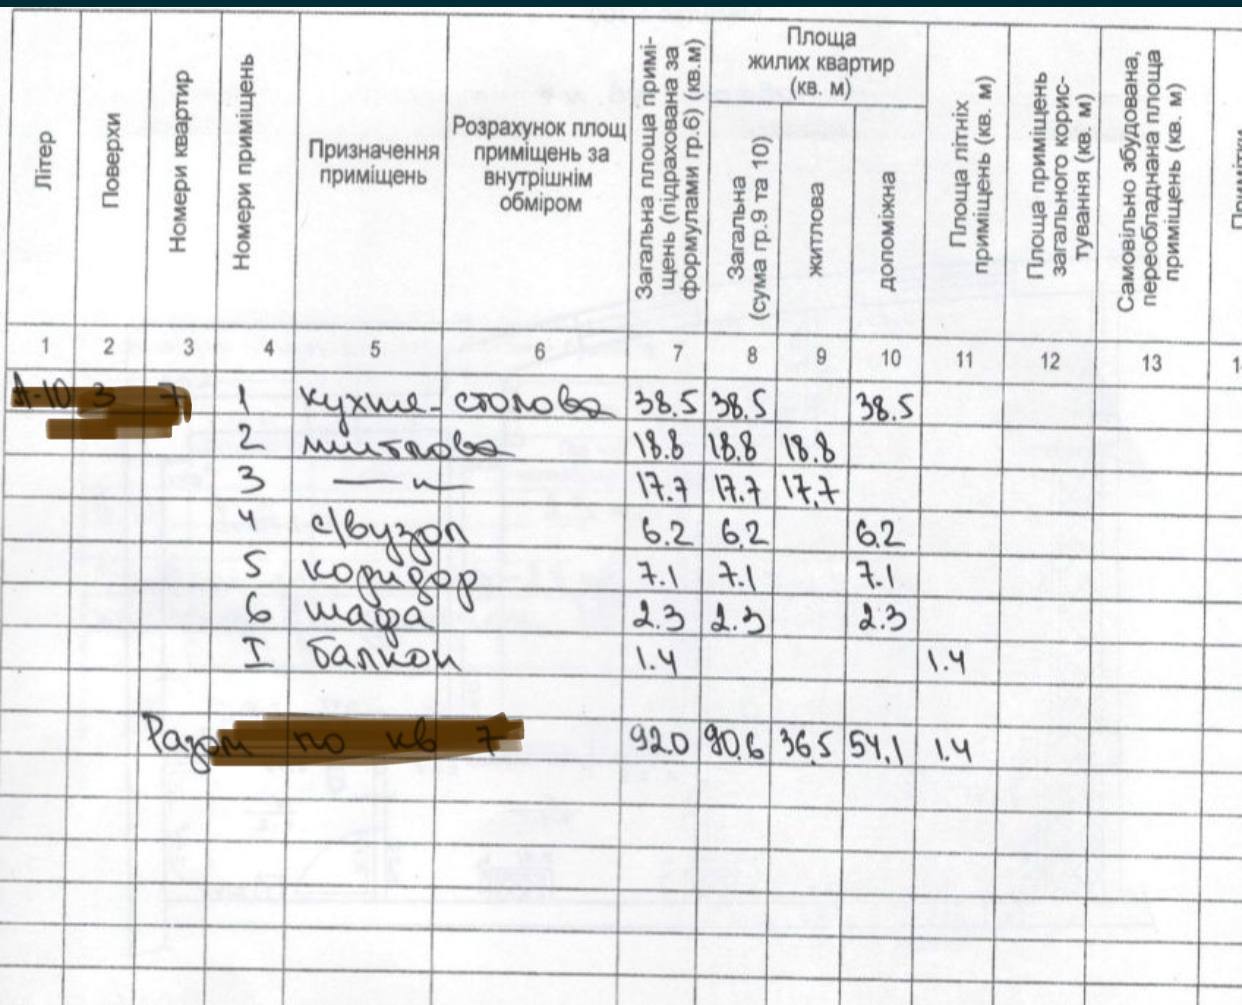 Літер
Поверхи
Номери квартир
Номери приміщень
Призначення
приміщень
Розрахунок площ
приміщень за
внутрішнім
обміром
Загальна площа примі-
щень (підрахована за
формулами гр.6) (кв.м)
Площа
жилих квартир
(кв. м)
Загальна
(сума гр.9 та 10)
житлова
допоміжна
Площа літніх
приміщень (кв. м)
Площа приміщень
загального корис-
тування (кв. м)
Самовільно збудована,
переобладнана площа
приміщень (кв. м)
1 2 3 4 5 6 7 8 9 10 11 12 13
А-10 3 7 1 кухня-столова 38.5 38.5 38.5
2 житлова 18.8 18.8 18.8
3 —"— 17.7 17.7 17.7
4 с/вузол 6.2 6.2 6.2
5 коридор 7.1 7.1 7.1
6 шафа 2.3 2.3 2.3
I балкон 1.4 1.4
Разом по кв 7 92.0 90.6 36.5 54.1 1.4